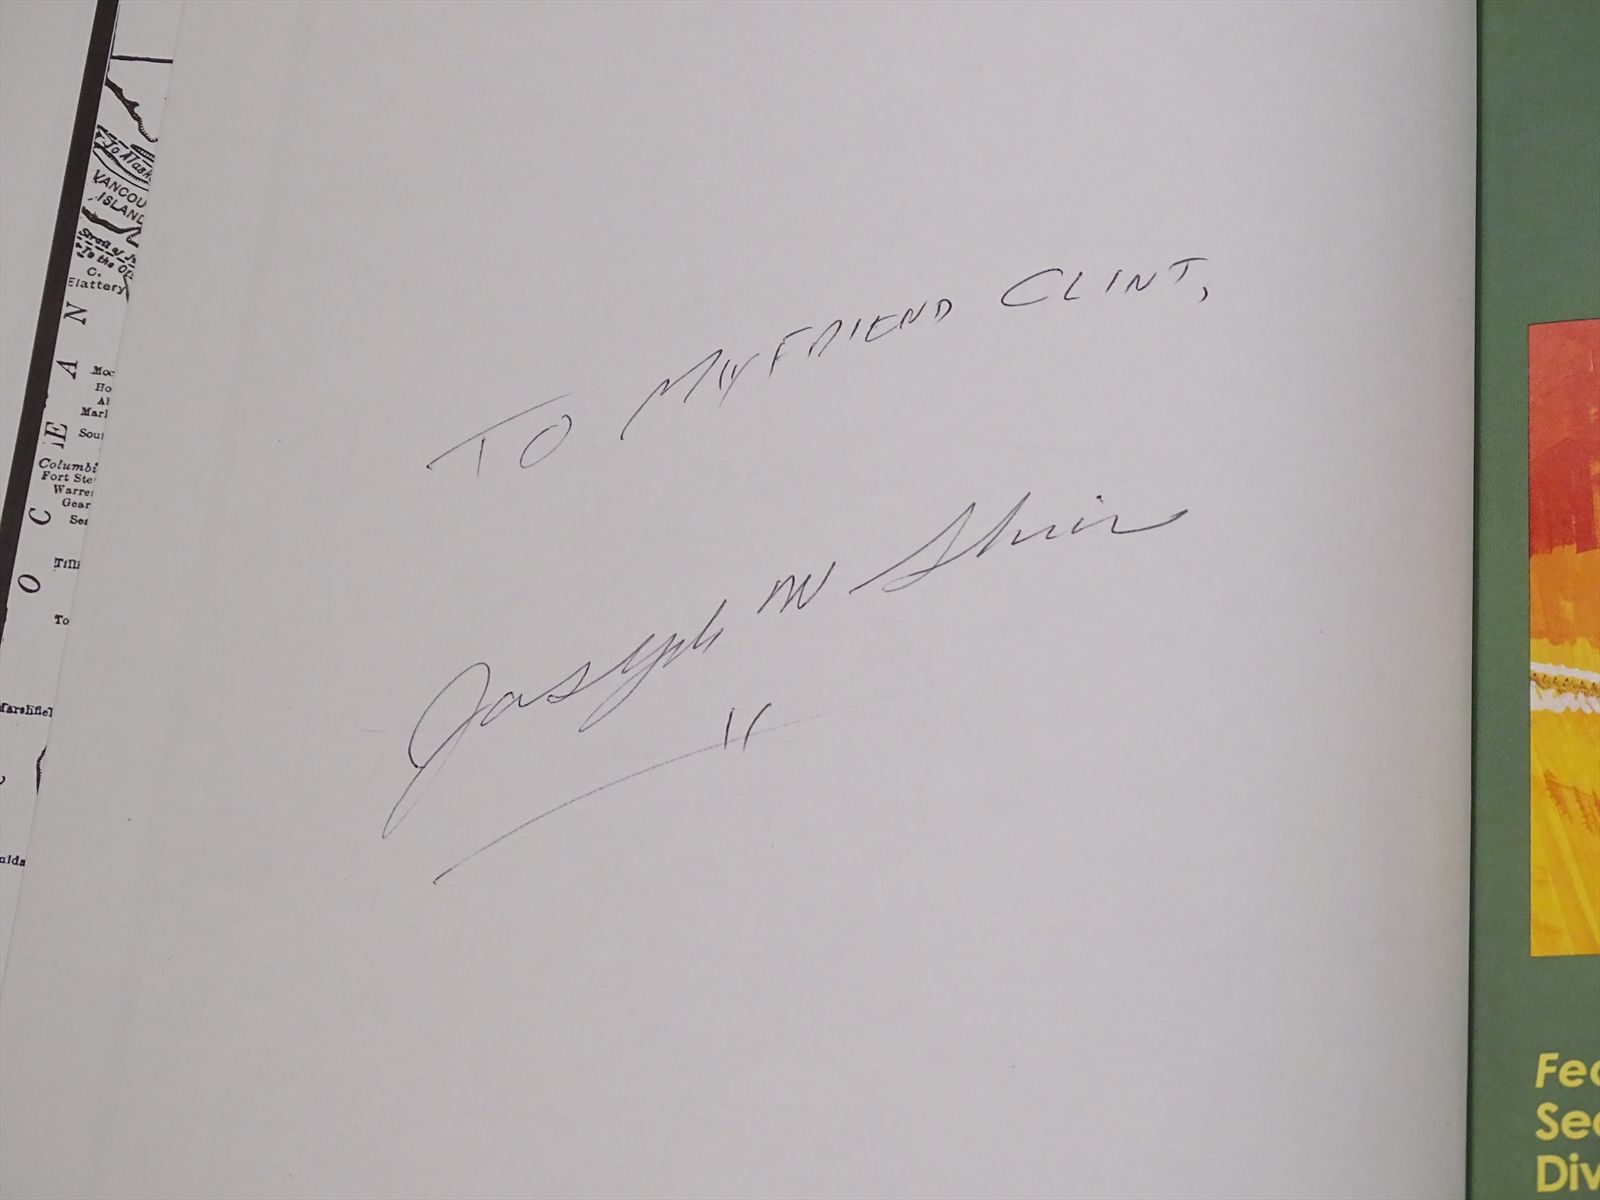 To Alask
VANCOU
ISLAND
Strait of J
To the O
C.
Flattery
OCEAN
Moc
Ho
Al
Marl
Sou
Columbi
Fort Ste
Warre
Gear
Sea
Tilla
To
Marshfiel
TO MY FRIEND CLINT,
Joseph W Shin
Fea
Sec
Div